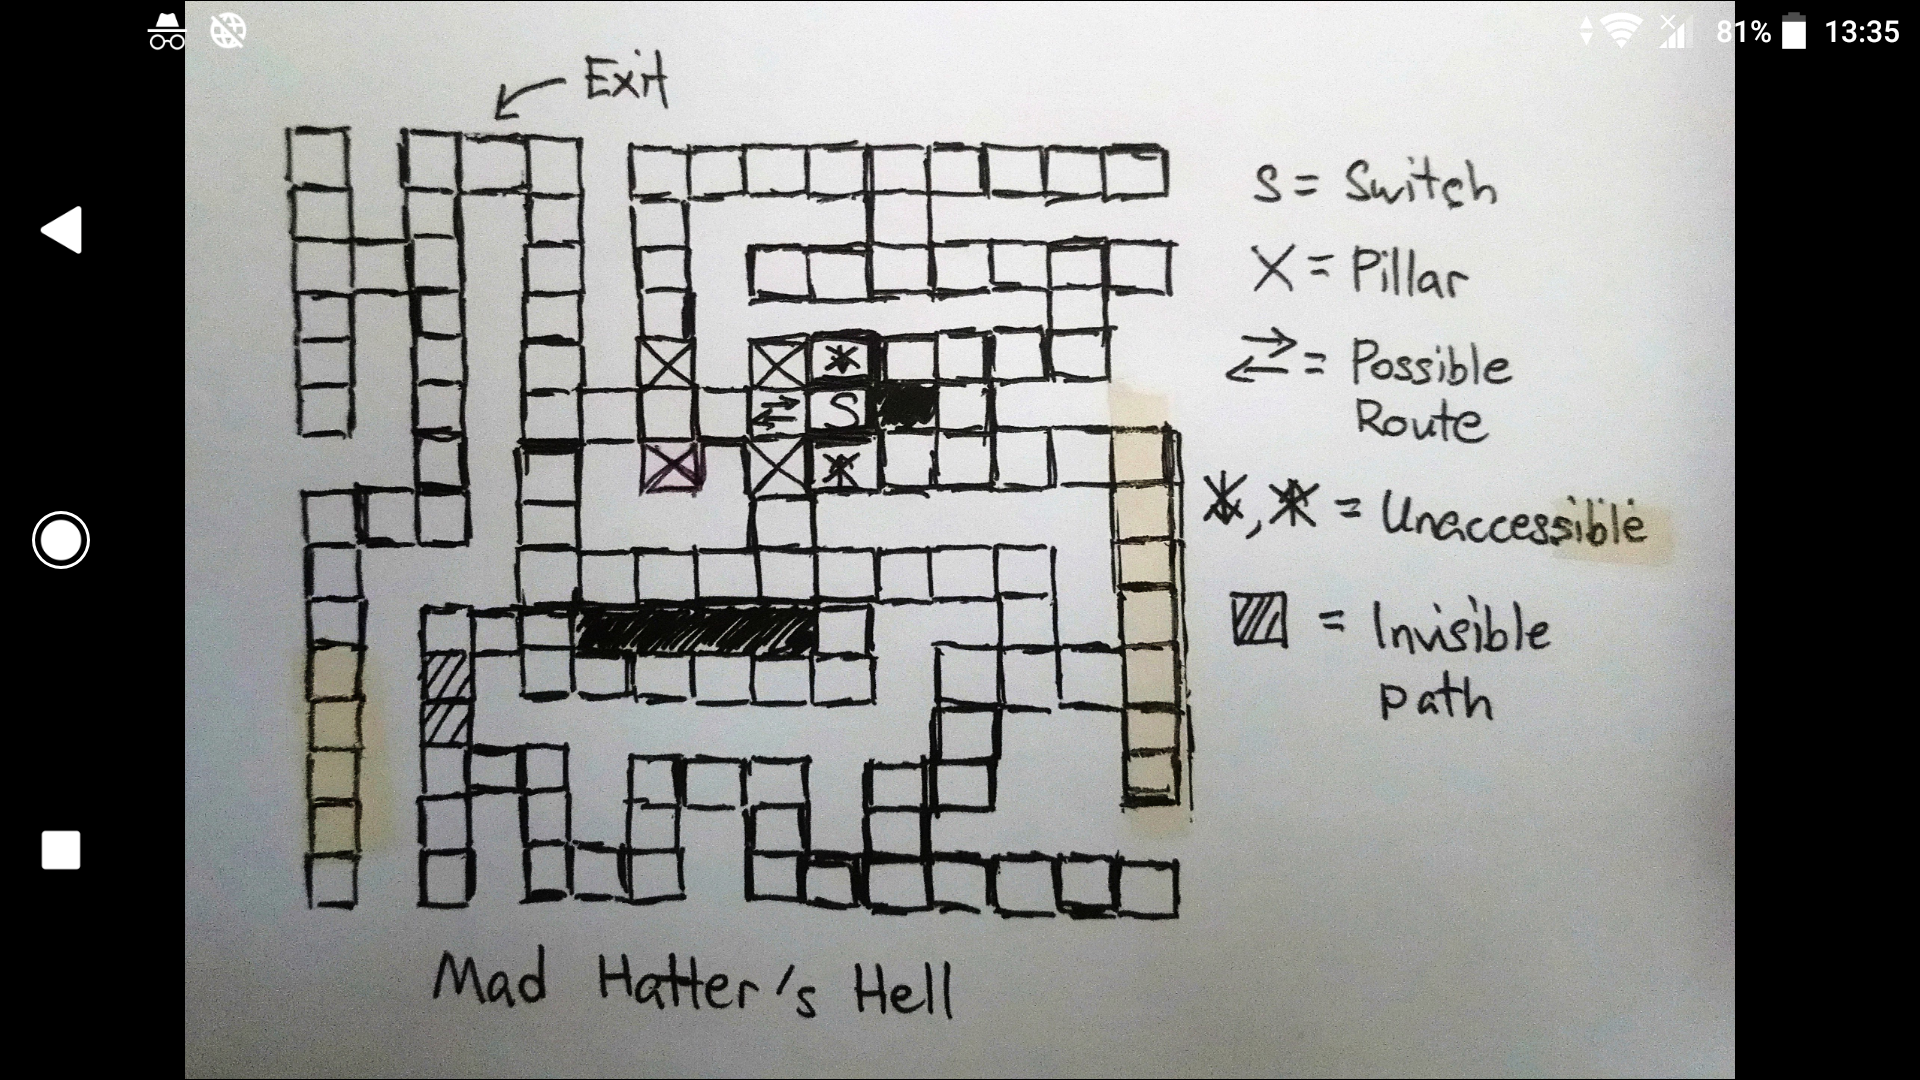 81% 13:35
Exit
S = Switch
X = Pillar
⇄ = Possible
Route
S
, = Unaccessible
= Invisible
path
Mad Hatter's Hell